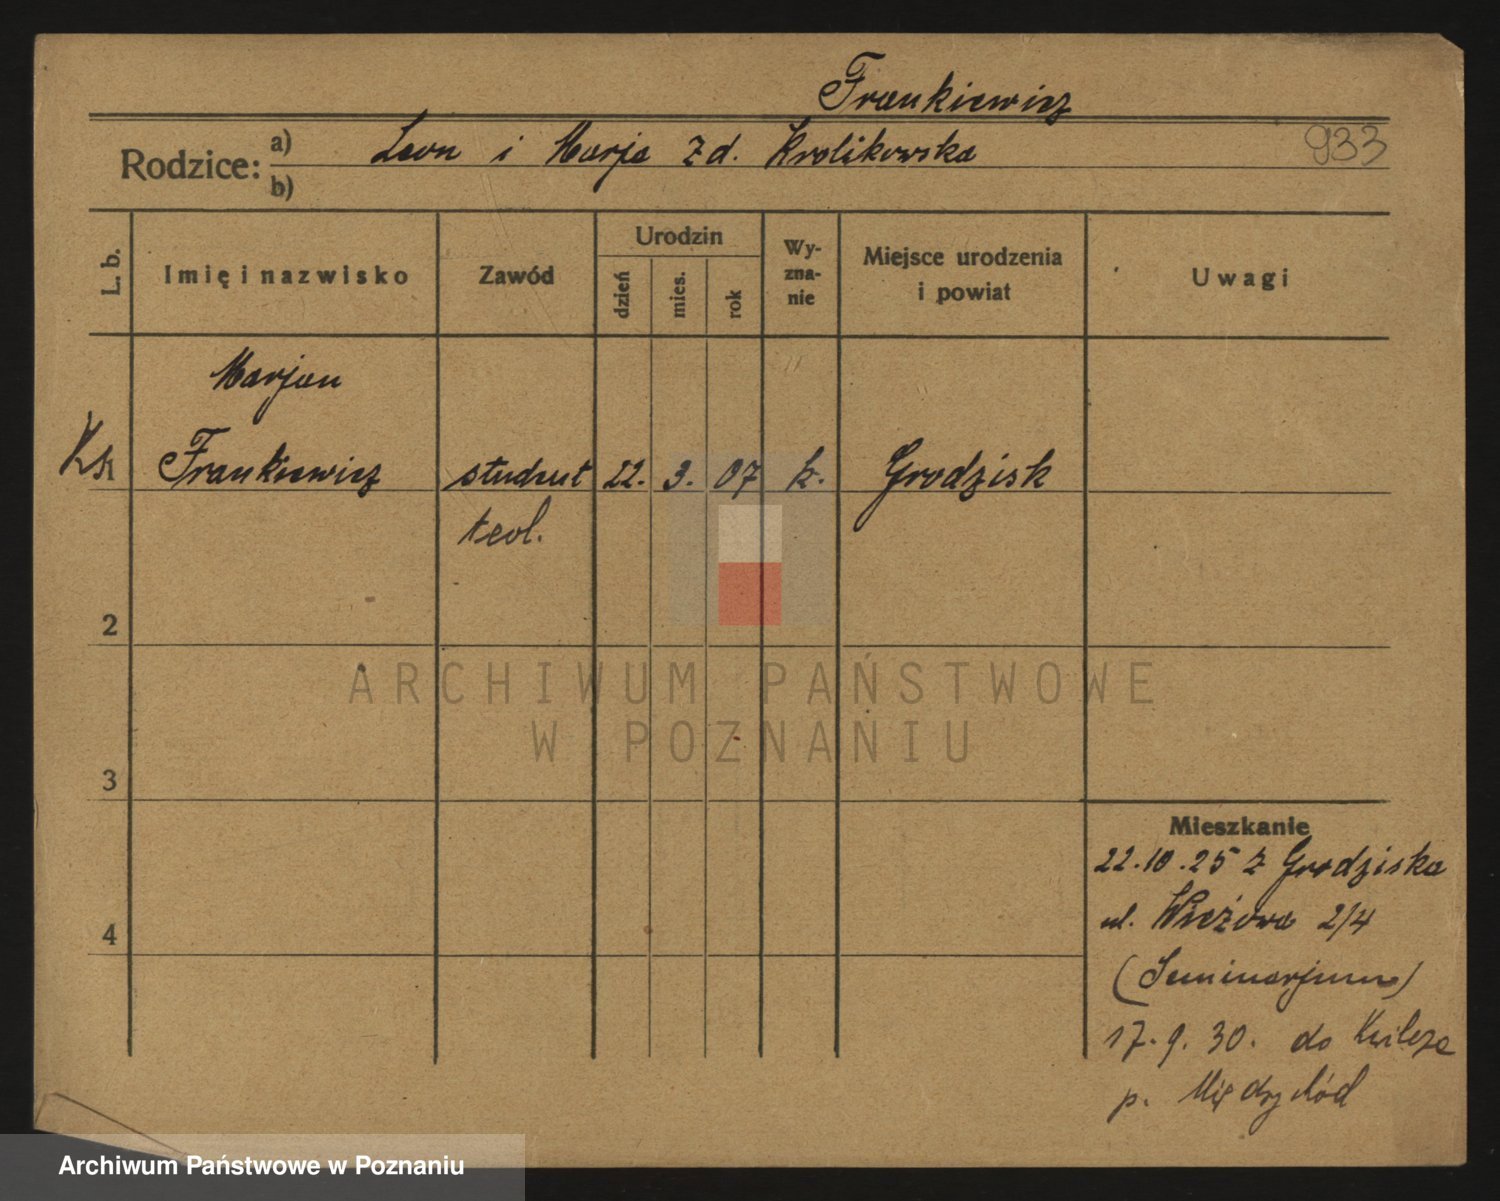 Frankiewicz
933
Rodzice: a) Leon i Marja zd. Krolikowska
b)
L. b.
Imię i nazwisko
Zawód
Urodzin
dzień
mies.
rok
Wy-
zna-
nie
Miejsce urodzenia
i powiat
Uwagi
Marjan
Ks Frankiewicz student 22. 3. 07 k. Grodzisk
teol.
2
3
4
ARCHIWUM PAŃSTWOWE
W POZNANIU
Mieszkanie
22.10.25 z Grodziska
ul. Wieżowa 2/4
(Seminarjum)
17.9.30. do Kwilcza
p. Międzychód
Archiwum Państwowe w Poznaniu